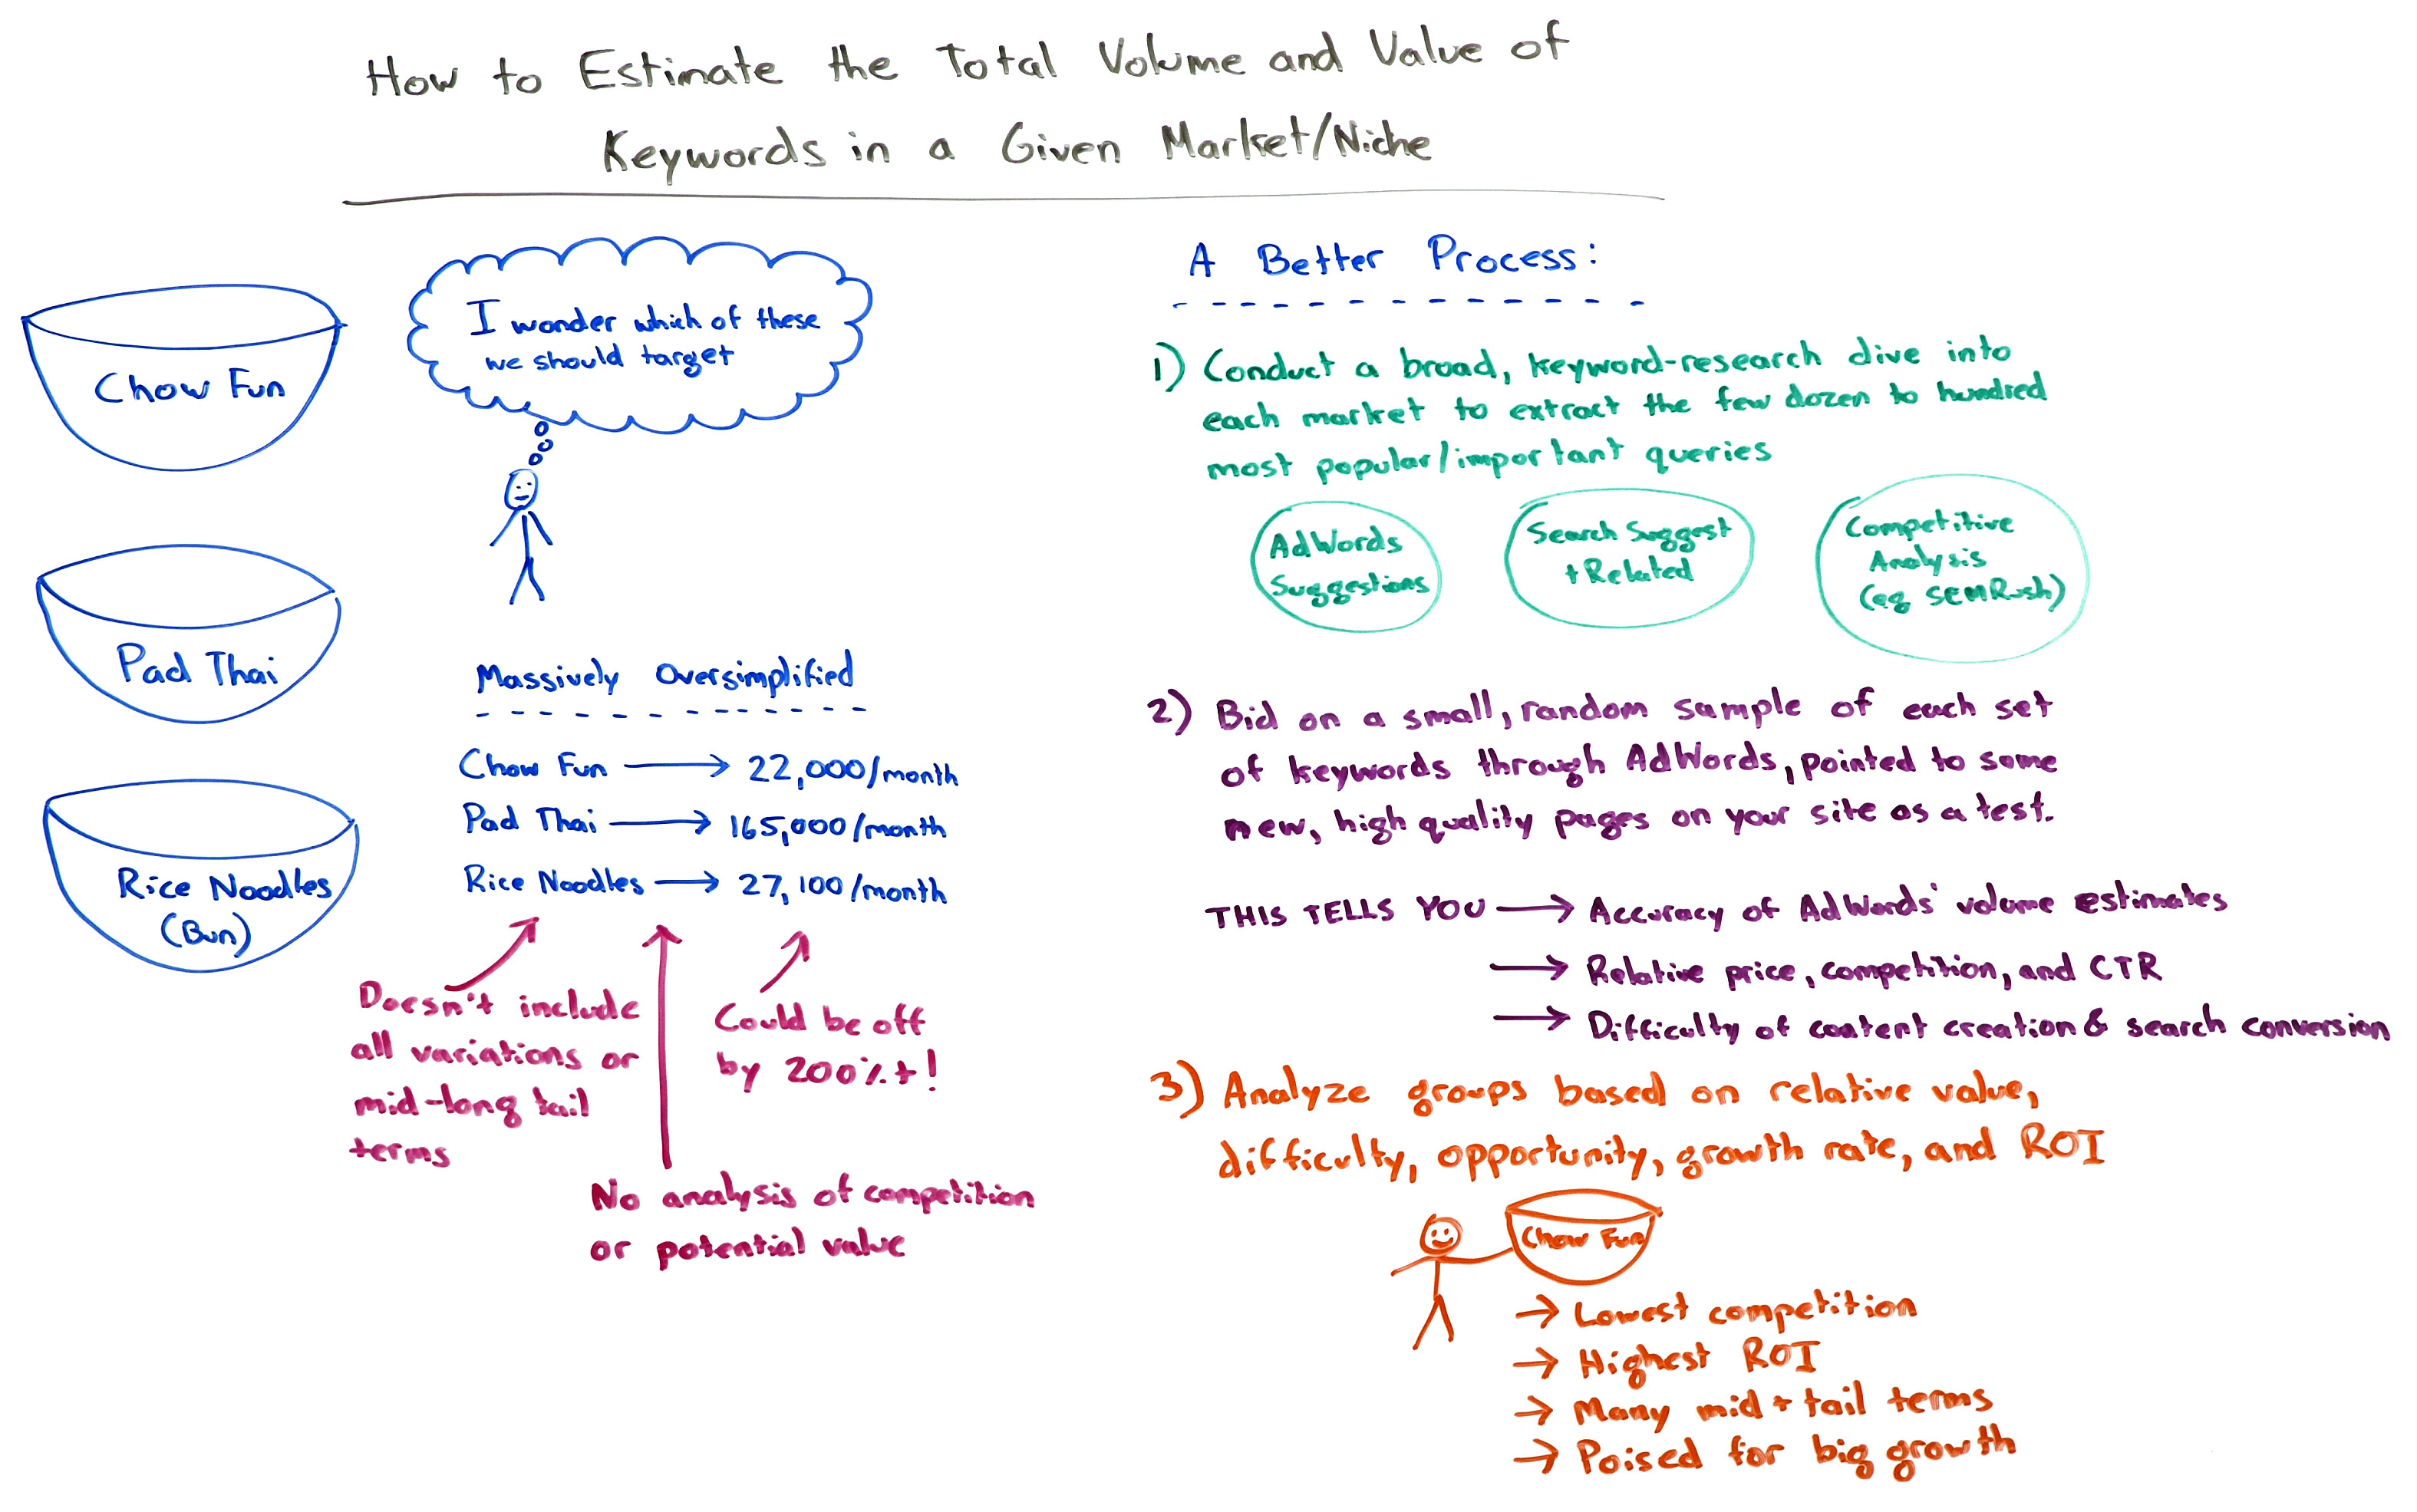 How to Estimate the Total Volume and Value of
Keywords in a Given Market/Niche
Chow Fun
I wonder which of these
we should target
Pad Thai
Rice Noodles
(Bun)
Massively Oversimplified
Chow Fun → 22,000/month
Pad Thai → 165,000/month
Rice Noodles → 27,100/month
Doesn't include
all variations or
mid-long tail
terms
Could be off
by 200%+!
No analysis of competition
or potential value
A Better Process:
1) Conduct a broad, keyword-research dive into
each market to extract the few dozen to hundred
most popular/important queries
AdWords
Suggestions
Search Suggest
+ Related
Competitive
Analysis
(eg SEMRush)
2) Bid on a small, random sample of each set
of keywords through AdWords, pointed to some
new, high quality pages on your site as a test.
THIS TELLS YOU → Accuracy of AdWords' volume estimates
→ Relative price, competition, and CTR
→ Difficulty of content creation & search conversion
3) Analyze groups based on relative value,
difficulty, opportunity, growth rate, and ROI
Chow Fun
→ Lowest competition
→ Highest ROI
→ Many mid + tail terms
→ Poised for big growth